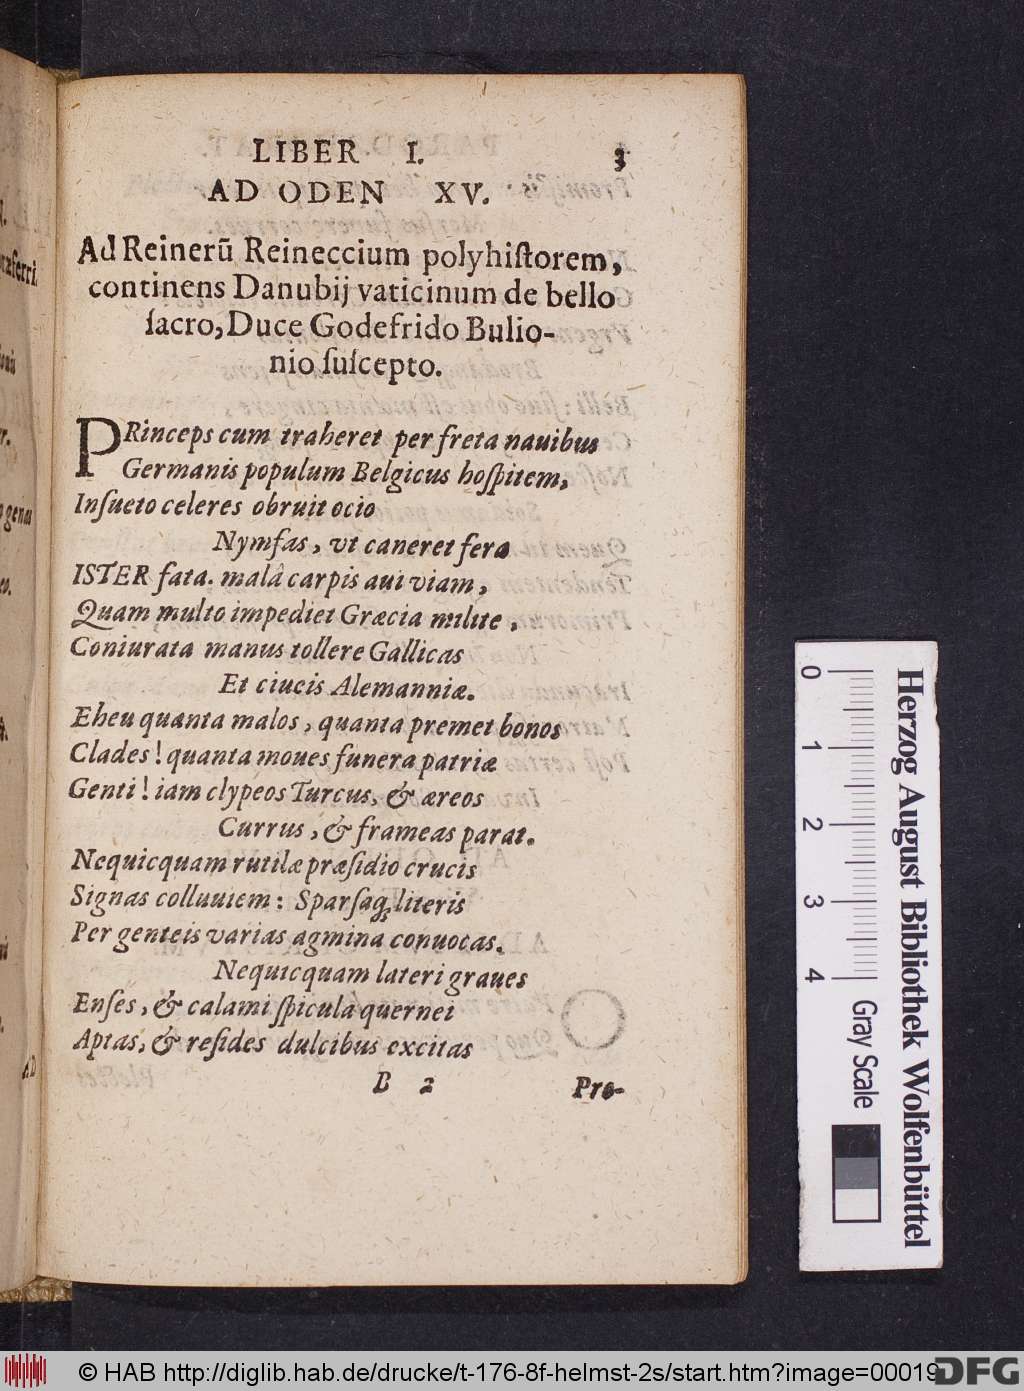 LIBER I. 3
AD ODEN XV.
Ad Reinerū Reineccium polyhiſtorem,
continens Danubij vaticinum de bello
ſacro, Duce Godefrido Bulio-
nio ſuſcepto.
PRinceps cum traheret per freta nauibus
Germanis populum Belgicus hoſpitem,
Inſueto celeres obruit ocio
Nymfas, vt caneret fera
ISTER fata. malâ carpis aui viam,
Quam multo impediet Græcia milite,
Coniurata manus tollere Gallicas
Et ciueis Alemanniæ.
Eheu quanta malos, quanta premet bonos
Clades! quanta moues funera patriæ
Genti! iam clypeos Turcus, & æreos
Currus, & frameas parat.
Nequicquam rutilæ præſidio crucis
Signas colluuiem: Sparſaq; literis
Per genteis varias agmina conuocas.
Nequicquam lateri graues
Enſes, & calami ſpicula quernei
Aptas, & reſides dulcibus excitas
B 2 Pro-
Herzog August Bibliothek Wolfenbüttel
0 1 2 3 4 Gray Scale
© HAB http://diglib.hab.de/drucke/t-176-8f-helmst-2s/start.htm?image=00019
DFG